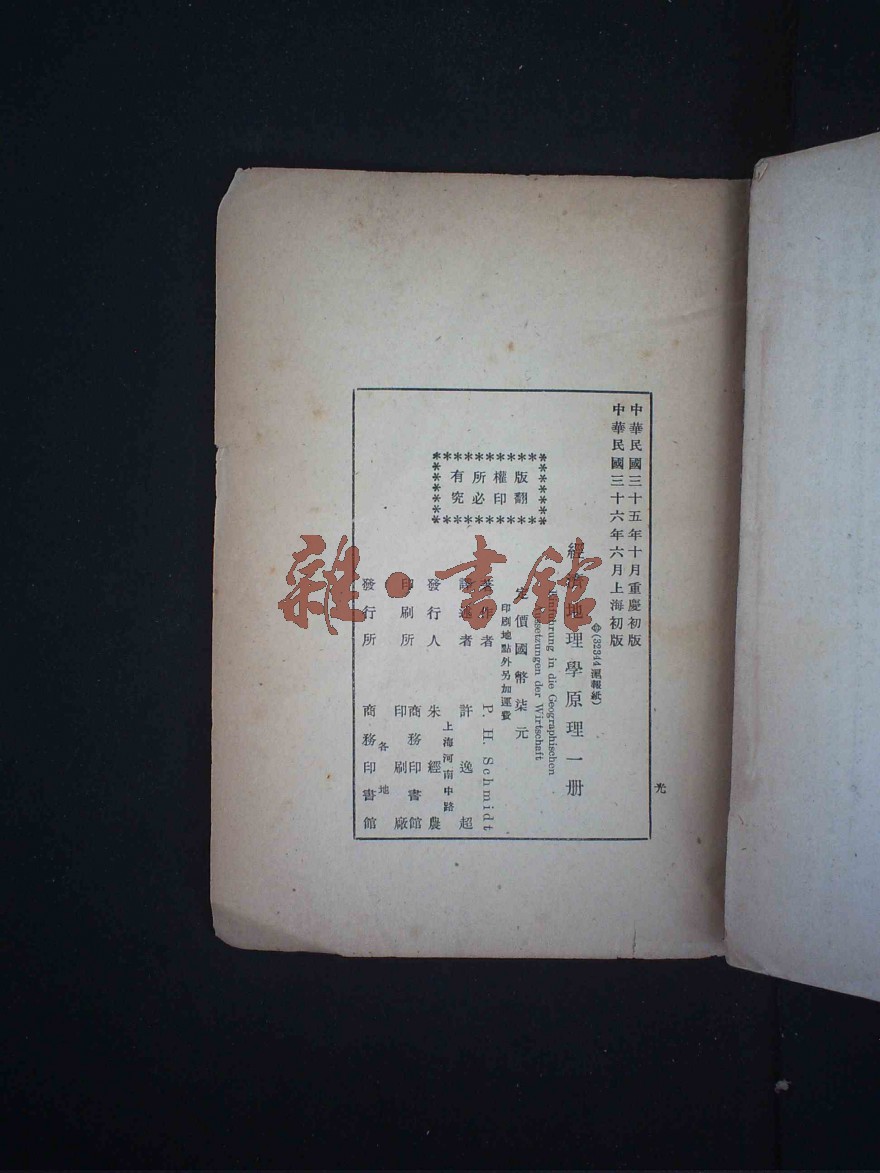 中華民國三十五年十月重慶初版
中華民國三十六年六月上海初版
◎(32344滬報紙)
經濟地理學原理一册
Einführung in die Geographischen
setzungen der Wirtschaft
定價國幣柒元
印刷地點外另加運費
版權所有
翻印必究
著作者 P. H. Schmidt
譯述者 許逸超
發行人 朱經農
上海河南中路
印刷所 商務印書館
印刷廠
發行所 商務印書館
各地
光
雜·書館